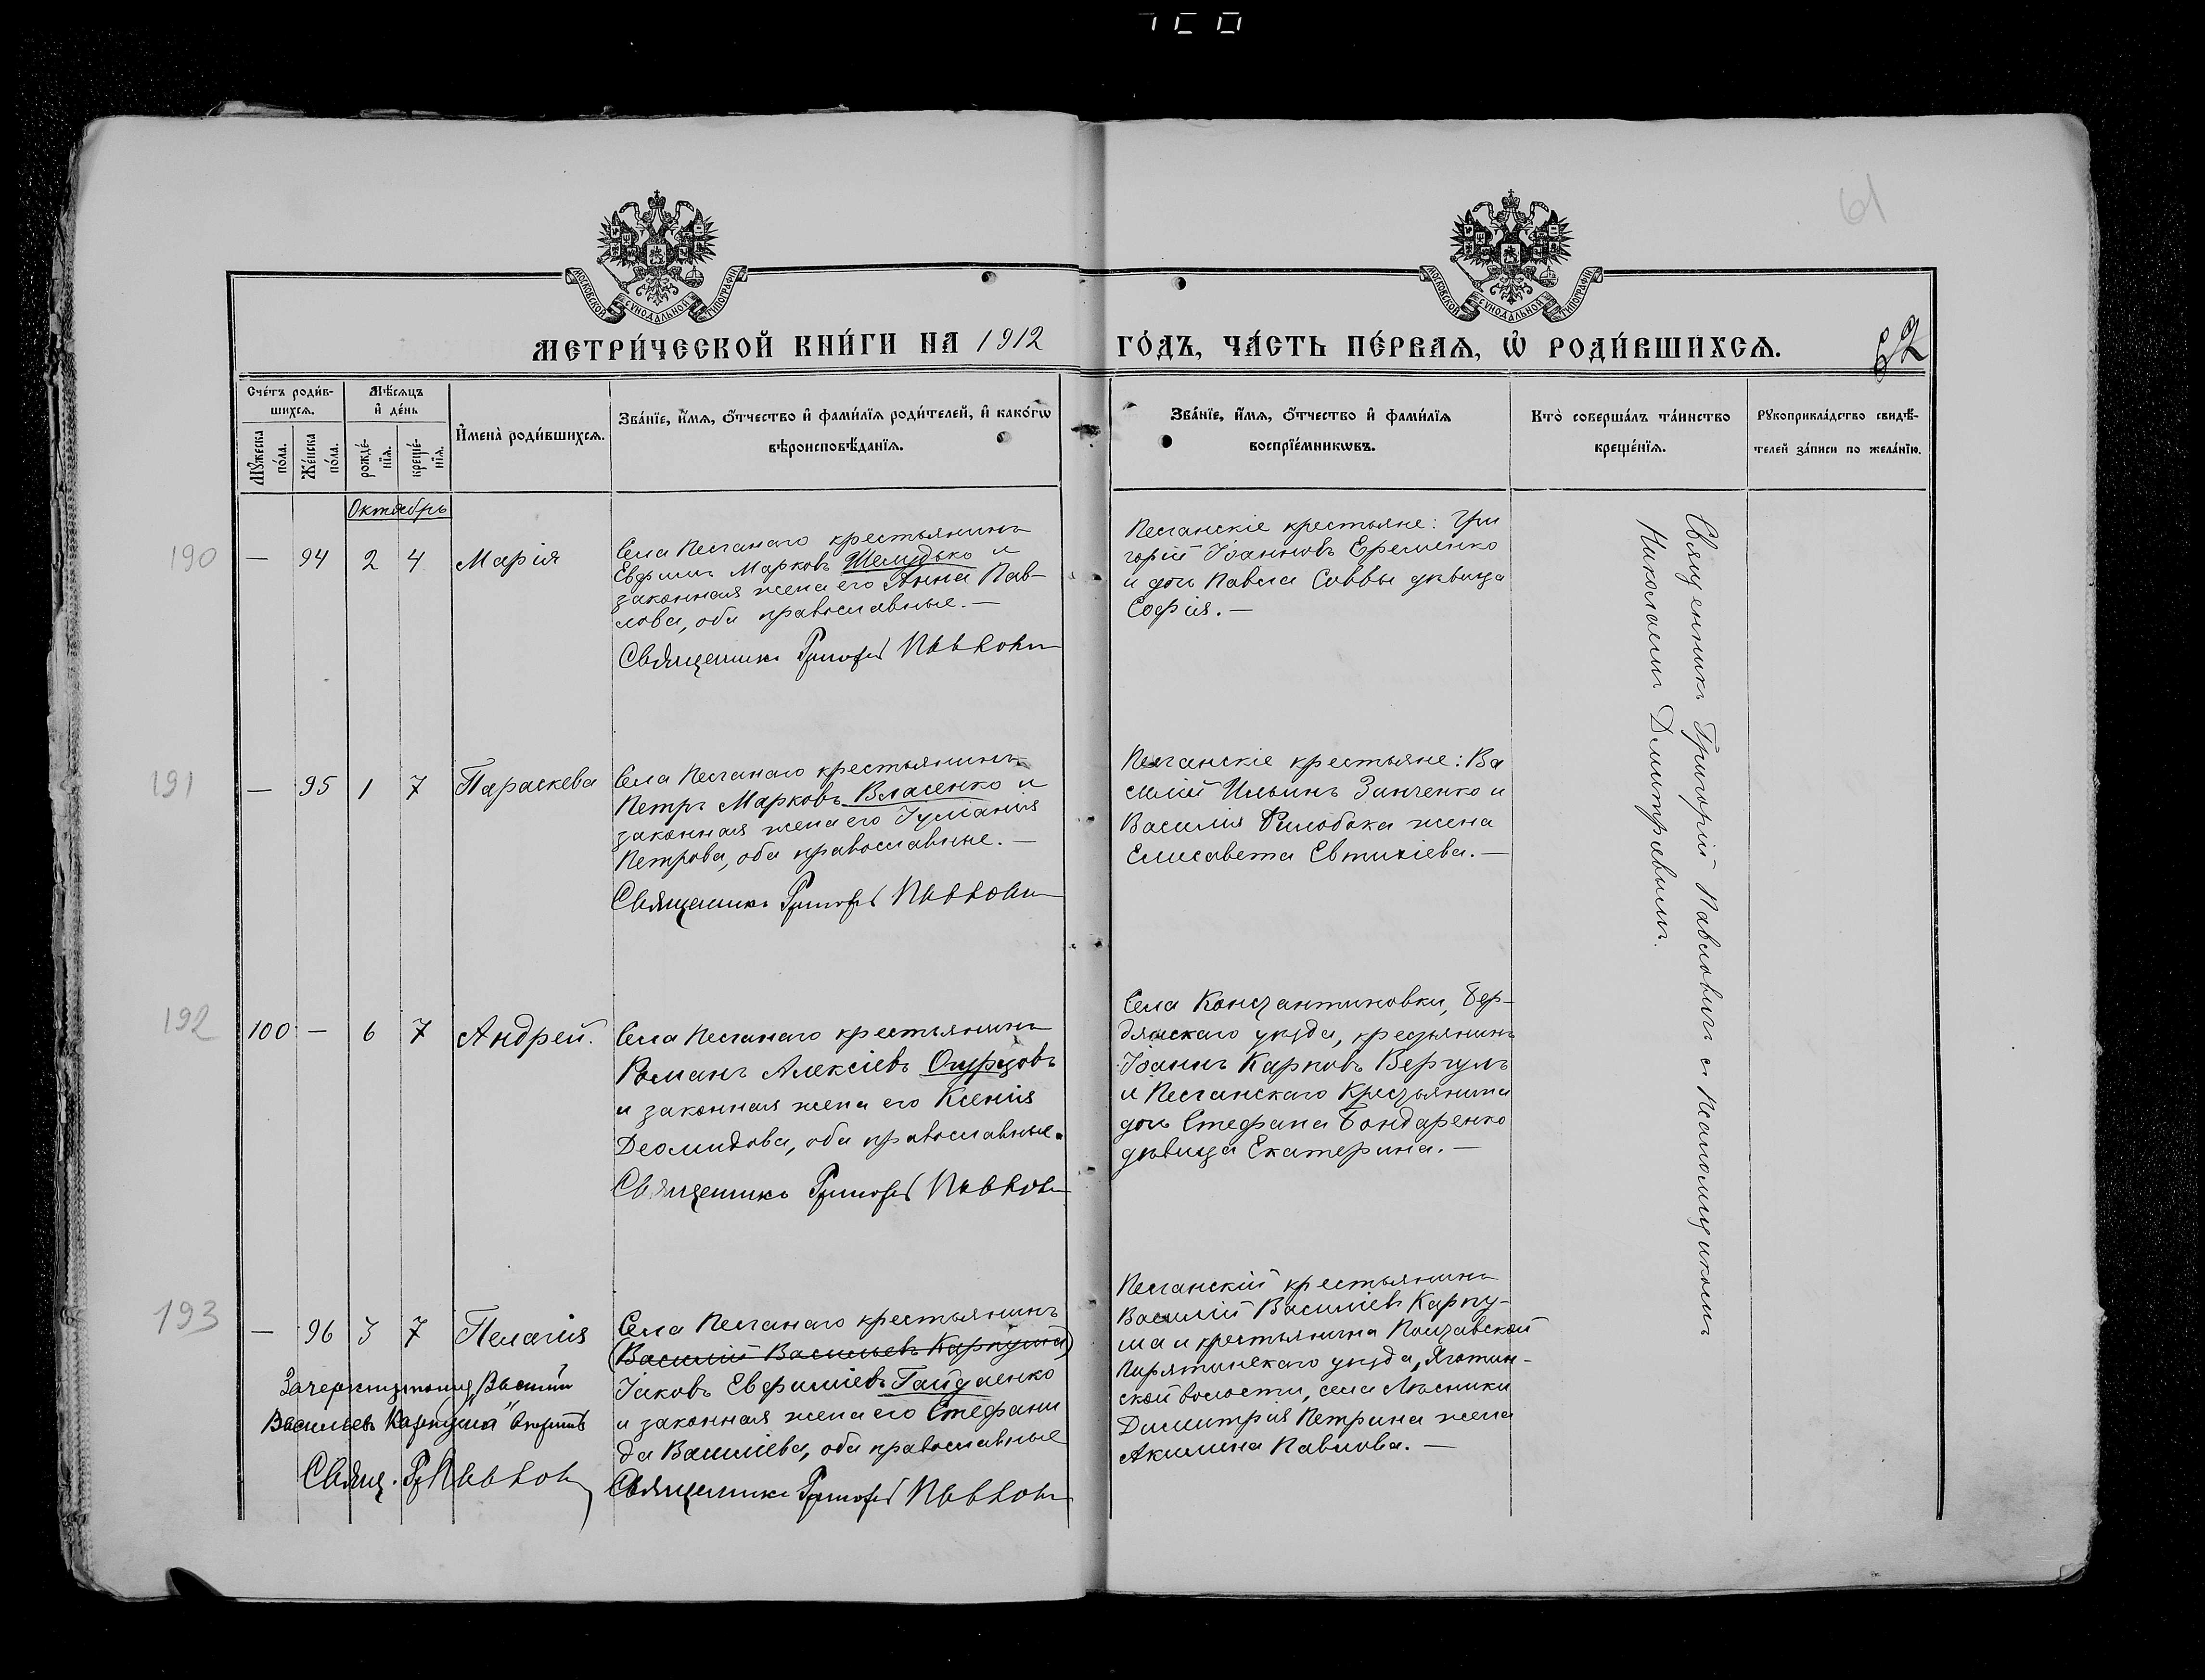 61
МОСКОВСКОЙ СѴНОДАЛЬНОЙ ТИПОГРАФІИ
МОСКОВСКОЙ СѴНОДАЛЬНОЙ ТИПОГРАФІИ
МЕТРИ́ЧЕСКОЙ КНИ́ГИ НА 1912
ГО́ДЪ, ЧА́СТЬ ПЕ́РВАѦ, Ѽ РОДИ́ВШИХСѦ.
62
Сче́тъ роди́в-
шихсѧ.
Мꙋ́жеска
по́ла.
Же́нска
по́ла.
Мѣ́сѧцъ
и҆ де́нь
рожде́-
нїѧ.
креще́-
нїѧ.
И҆мена̀ роди́вшихсѧ.
Зва́нїе, и҆́мѧ, ѻ҆́тчество и҆ фами́лїѧ роди́телей, и҆ како́гѡ
вѣроисповѣ́данїѧ.
Зва́нїе, и҆́мѧ, ѻ҆́тчество и҆ фами́лїѧ
воспрїе́мникѡвъ.
Кто̀ соверша́лъ та́инство
креще́нїѧ.
Рꙋкоприкла́дство свидѣ́-
телей за́писи по жела́нїю.
Октябрь
190
— 94 2 4 Марія
Села Песчанаго крестьянинъ
Евфимъ Марковъ Шемудько и
законная жена его Анна Пав-
лова, оба православные. —
Священникъ Григорій Павлович
Песчанскіе крестьяне: Гри
горій Іоанновъ Еременко
и дочь Павла Саввы дѣвица
Софія. —
191
— 95 1 7 Параскева
Села Песчанаго крестьянинъ
Петръ Марковъ Власенко и
законная жена его Іуліанія
Петрова, оба православные. —
Священникъ Григорій Павлович
Песчанскіе крестьяне: Ва
силій Ильинъ Занченко и
Василія Рилобока жена
Елисавета Евтихіева. —
192
100 — 6 7 Андрей.
Села Песчанаго крестьянинъ
Романъ Алексіевъ Огурцовъ
и законная жена его Ксенія
Деомидова, оба православные.
Священникъ Григорій Павлович
Села Константиновки, Бер-
дянскаго уѣзда, крестьянинъ
Іоаннъ Карповъ Вергунъ
и Песчанскаго крестьянина
дочь Стефана Бондаренко
дѣвица Екатерина. —
193
— 96 3 7 Пелагія
Села Песчанаго крестьянинъ
(Василій Васильевъ Карпуша)
Іаковъ Евфиміевъ Гайдаенко
и законная жена его Стефани
да Василіева, оба православные
Священникъ Григорій Павлович
Зачеркнутому „Василій
Васильевъ Карпуша"
Свящ. Гр Павлович
Песчанскій крестьянинъ
Василій Василіевъ Карпу-
ша и крестьянина Полтавской
Пирятинскаго уѣзда, Яготин-
ской волости, села Лѣсники
Димитрія Петрина жена
Акилина Павлова. —
Священникъ Григорій Павловичъ съ псаломщикомъ
Николаемъ Димитріевымъ.